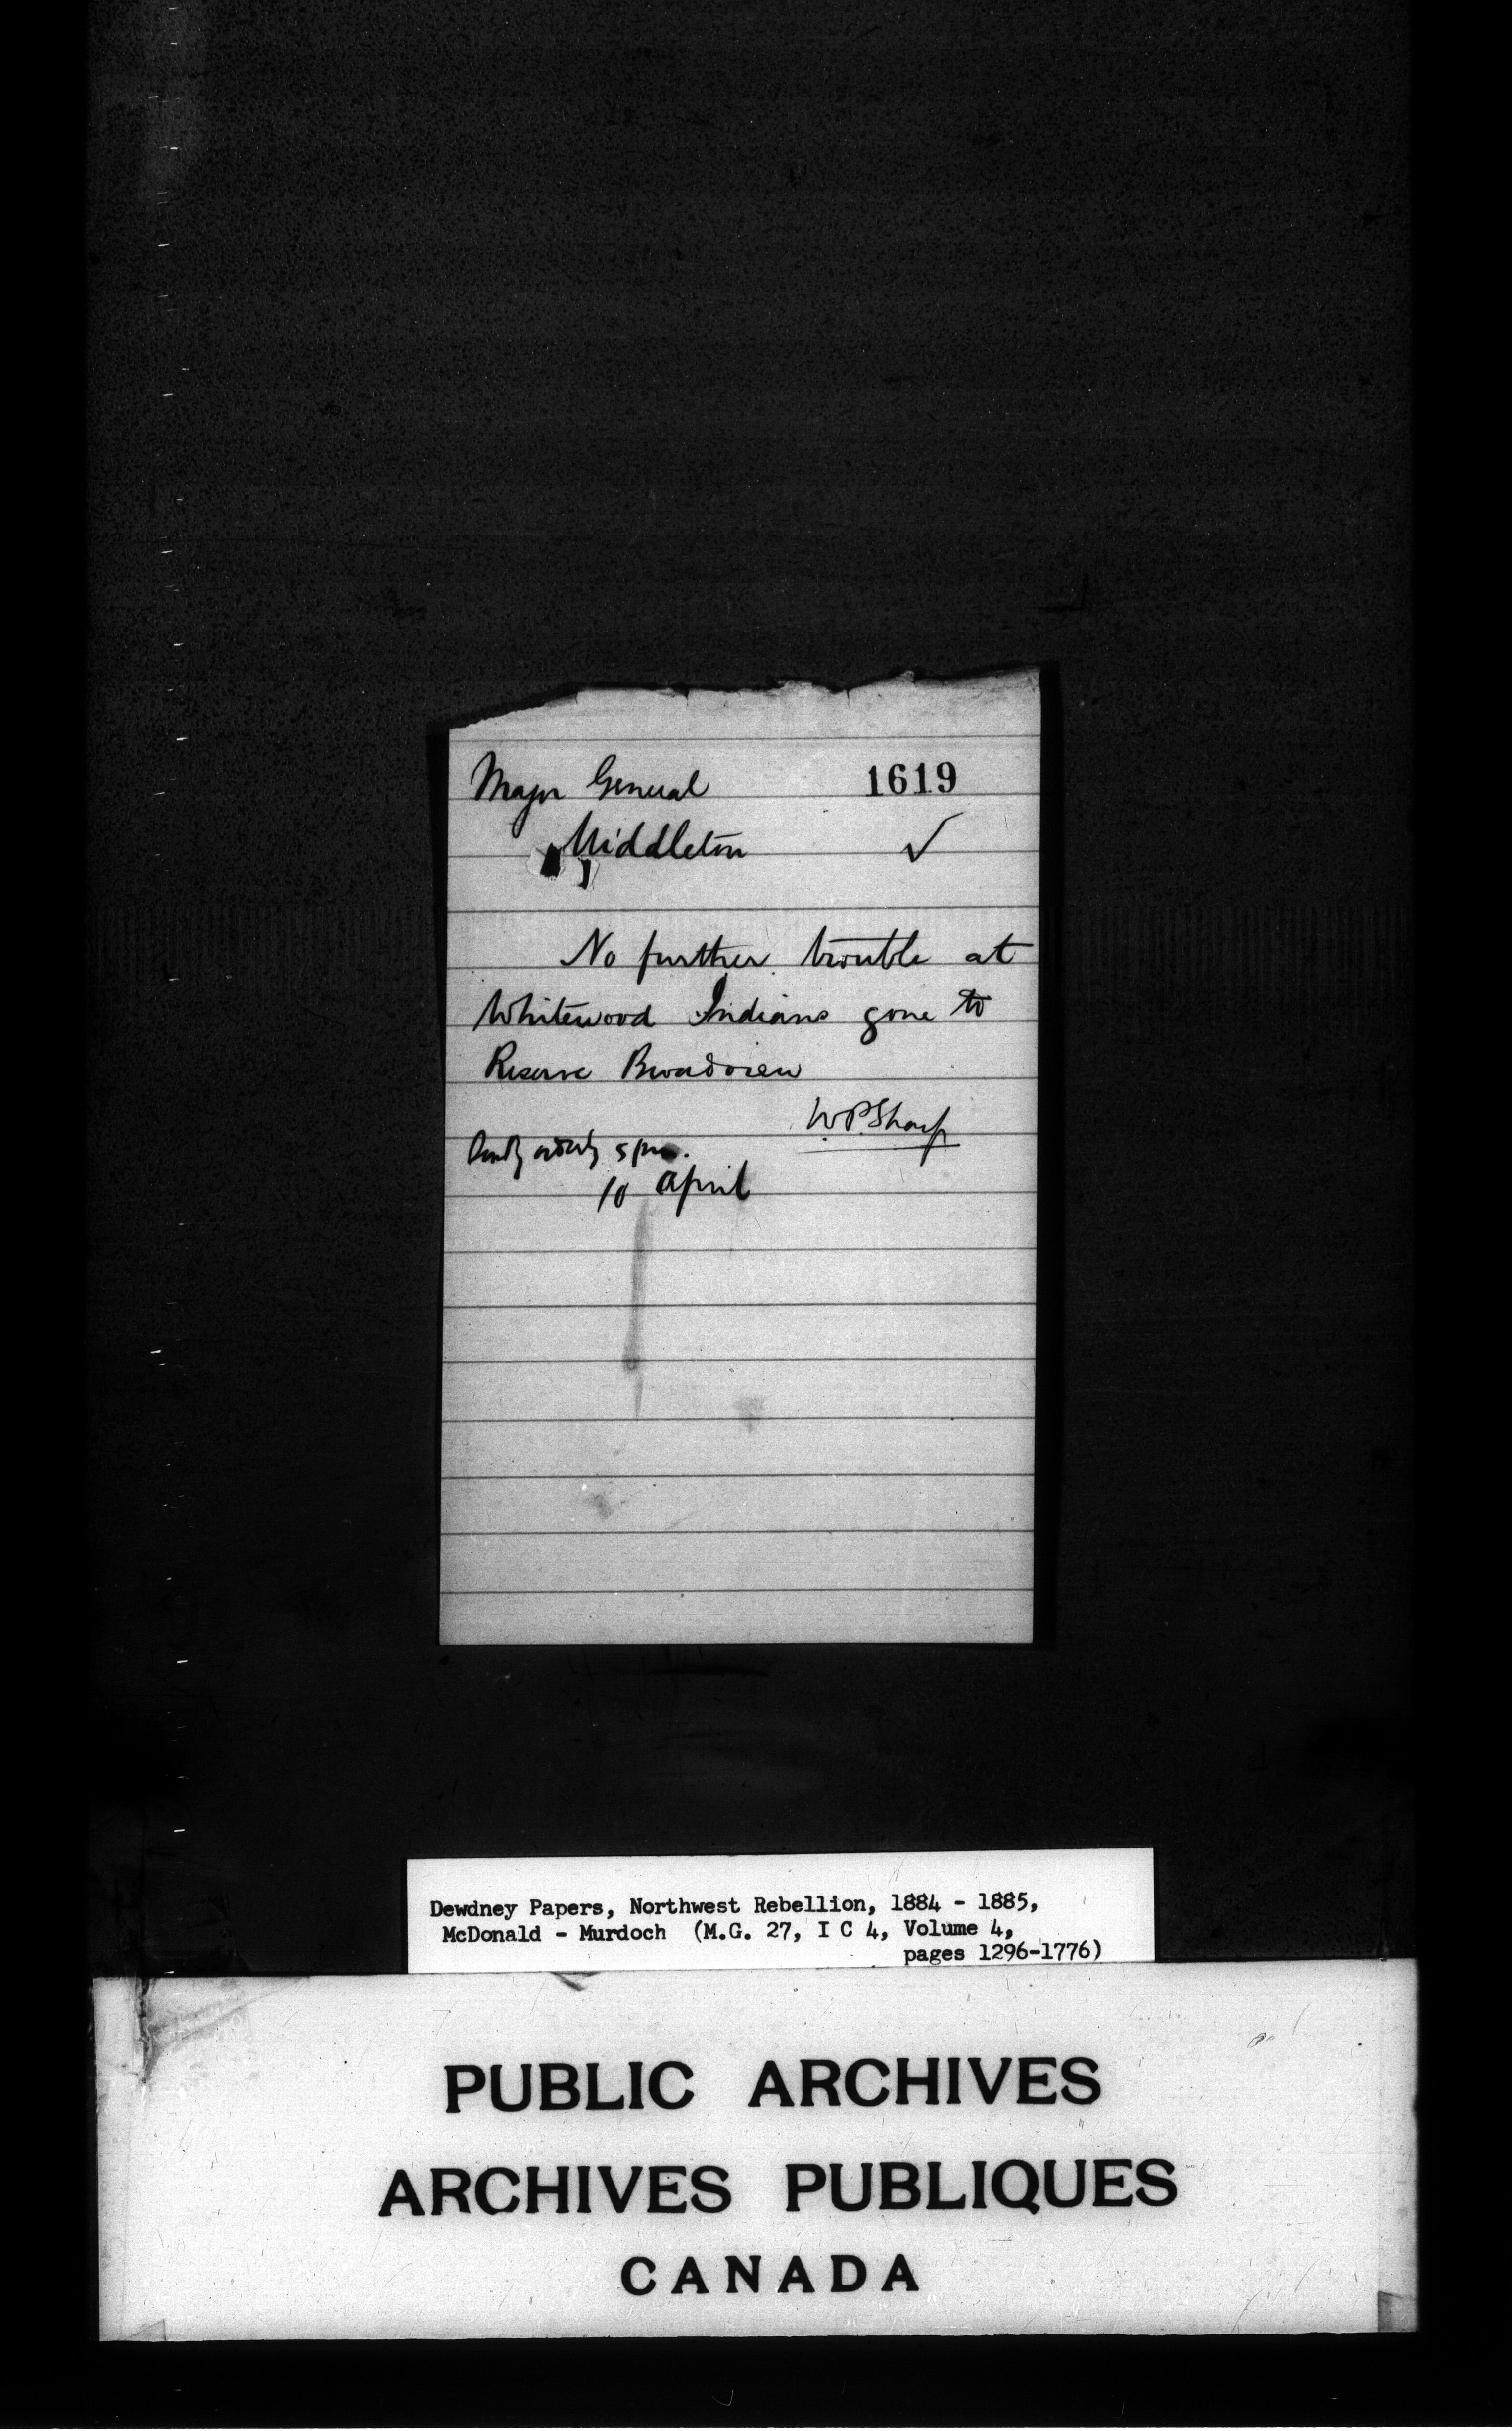 Major General 1619
Middleton ✓
No further trouble at
Whitewood Indians gone to
Reserve Broadview
W.P. Sharp
5 pm.
10 April
Dewdney Papers, Northwest Rebellion, 1884 - 1885,
McDonald - Murdoch (M.G. 27, I C 4, Volume 4,
pages 1296-1776)
PUBLIC ARCHIVES
ARCHIVES PUBLIQUES
CANADA